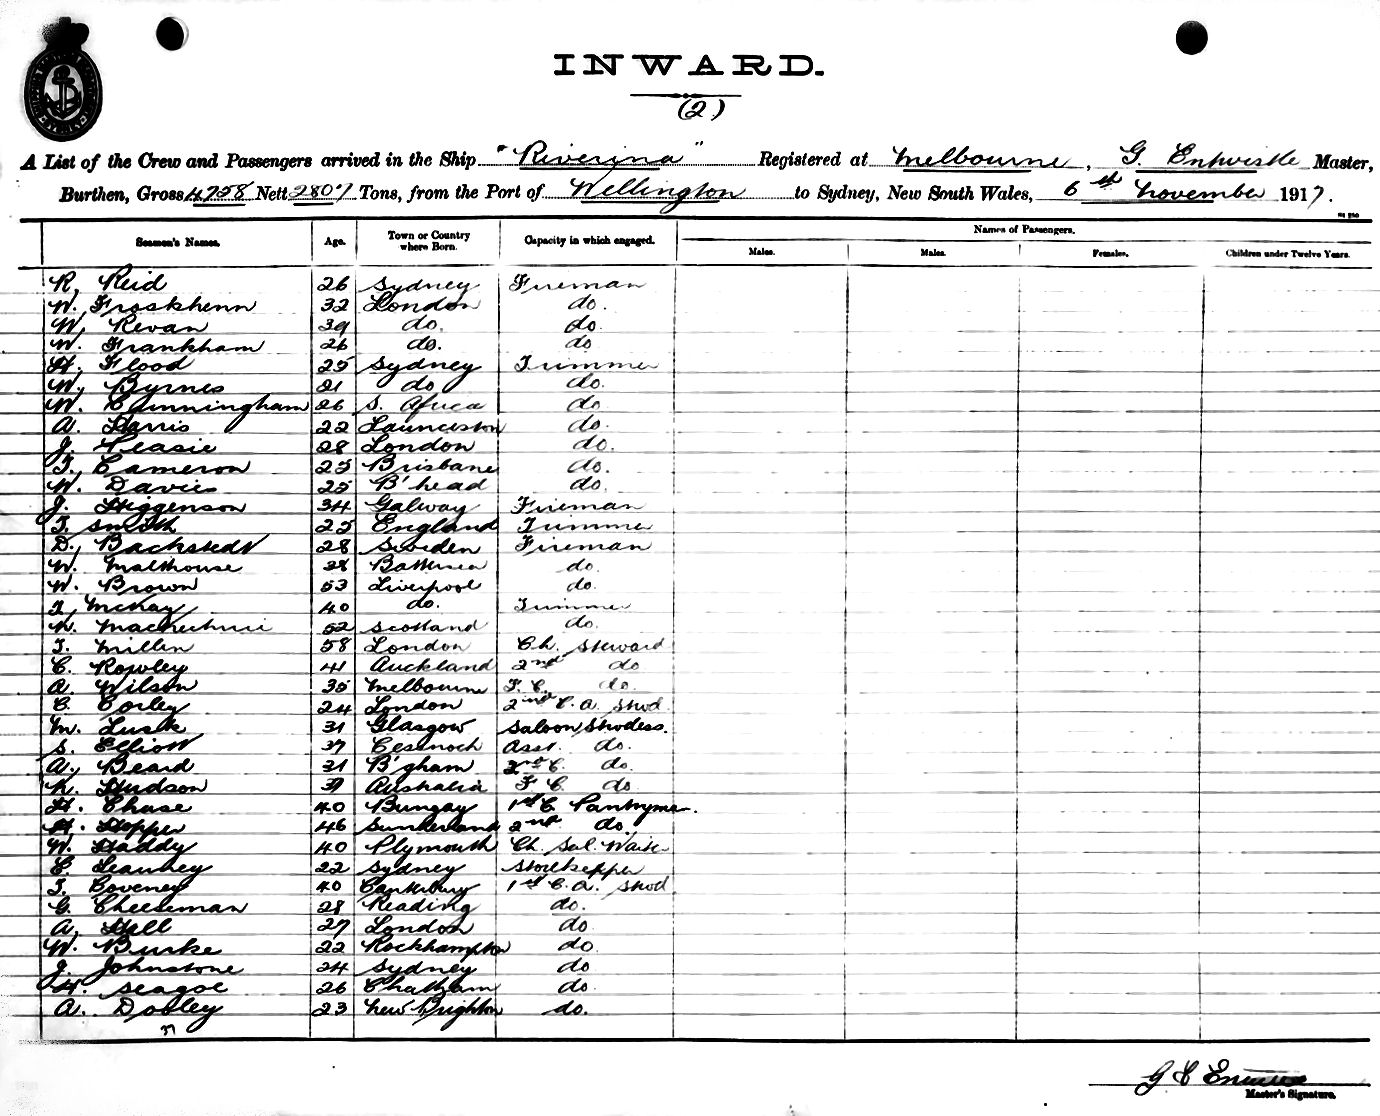 INWARD.
(2)
A List of the Crew and Passengers arrived in the Ship "Riverina" Registered at Melbourne, G. Entwistle Master,
Burthen, Gross 4758 Nett 2807 Tons, from the Port of Wellington to Sydney, New South Wales, 6th November 1917.
Seamen's Names. Age. Town or Country where Born. Capacity in which engaged. Names of Passengers.
Males. Males. Females. Children under Twelve Years.
R. Reid 26 Sydney Fireman
W. 32 London do.
W. Revan 39 do. do.
W. Frankham 26 do. do
H. Flood 25 Sydney Trimmer
W. Byrnes 21 do do.
W. Cunningham 26 S. Africa do.
A. Harris 22 Launceston do.
J. Peasie 28 London do.
T. Cameron 25 Brisbane do.
W. Davies 25 B'head do.
J. Higgenson 34 Galway Fireman
T. Smith 25 England Trimmer
D. Backstedt 28 Sweden Fireman
W. Malthouse 28 Battersea do.
W. Brown 53 Liverpool do.
T. McKay 40 do. Trimmer
N. 52 Scotland do.
T. Millin 58 London Ch. Steward
C. Rowley 41 Auckland 2nd do
A. Wilson 35 Melbourne F. C. do.
C. Corley 24 London 2nd C. A. Stwd.
M. Lusk 31 Glasgow Saloon Stwdess.
S. Elliott 37 Cessnock Asst. do.
A. Beard 31 B'gham 2nd C. do.
N. Hudson 37 Australia F C. do
H. Chase 40 Bungay 1st C. Pantryma.
H. Hopper 46 Sunderland 2nd do.
W. Haddy 40 Plymouth Ch. Sal. Waite
E. Leauhey 22 Sydney Storekeeper
T. Coveney 40 Canterbury 1st C. A. Stwd.
G. Cheeseman 28 Reading do.
A. Hell 27 London do
W. Burke 22 Rockhampton do.
J. Johnstone 24 Sydney do
H. Seagoe 26 Chatham do.
A. Dooley 23 New Brighton do.
37
G C
Master's Signature.